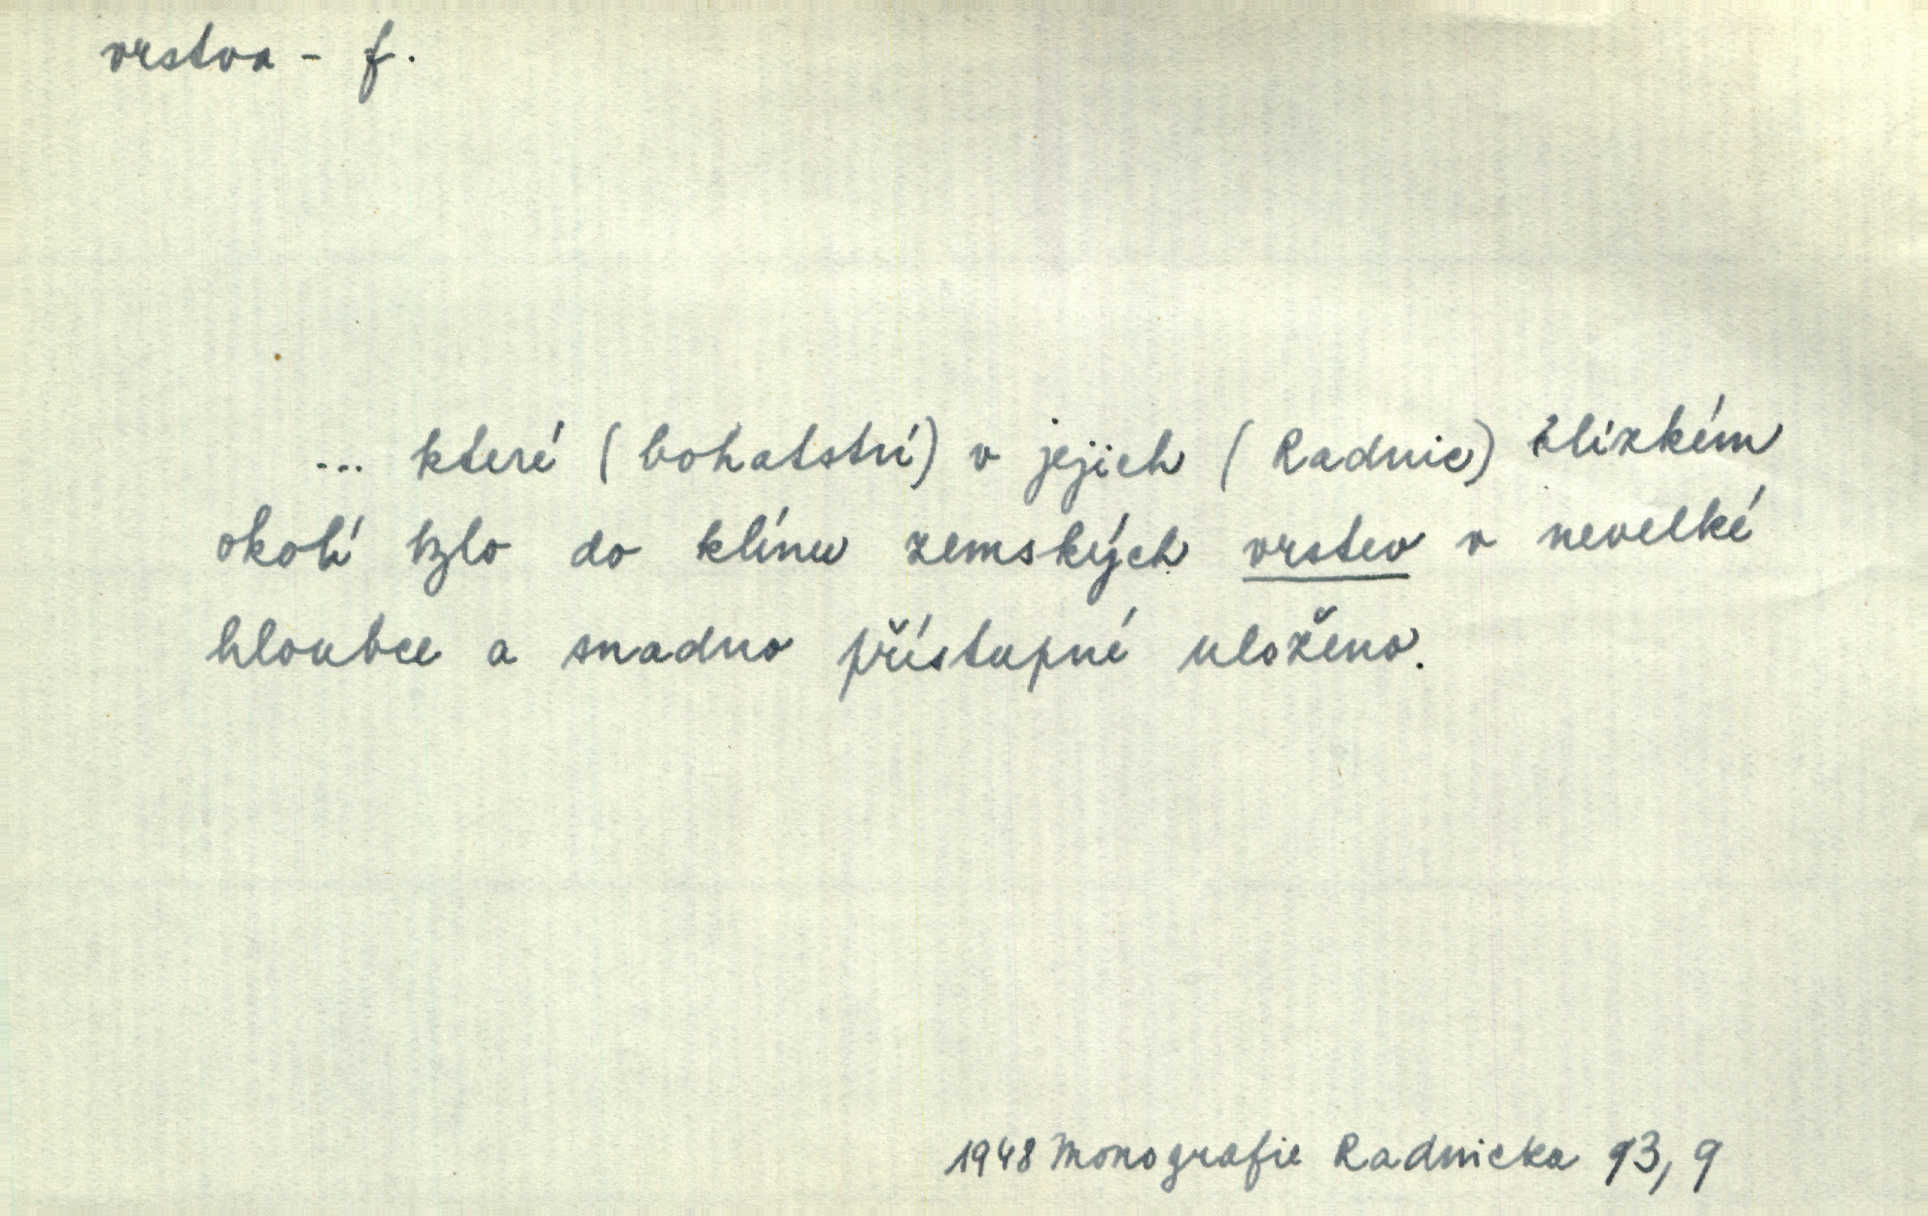 vrstva - f.
... které (bohatství) v jejich (Radnic) blízkém
okolí bylo do klínu zemských vrstev v nevelké
hloubce a snadno přístupné uloženo.
1948 Monografie Radnicka 93, 9